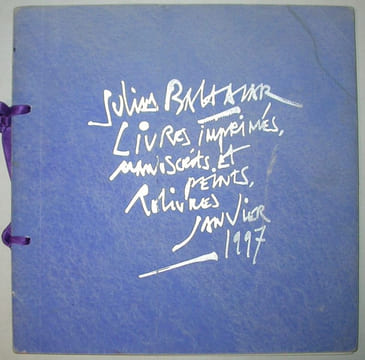 Julius BALTAZAR
LIVRES imprimés,
manuscrits et
PEINTS,
Reliures
JANVIER
1997